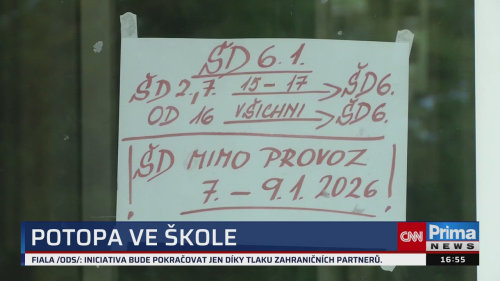 ŠD 6.1.
ŠD 2,7. 15-17 → ŠD6.
OD 16 VŠICHNI → ŠD6.
! ŠD MIMO PROVOZ !
7. - 9.1. 2026
POTOPA VE ŠKOLE
FIALA /ODS/: INICIATIVA BUDE POKRAČOVAT JEN DÍKY TLAKU ZAHRANIČNÍCH PARTNERŮ.
CNN Prima
NEWS
16:55